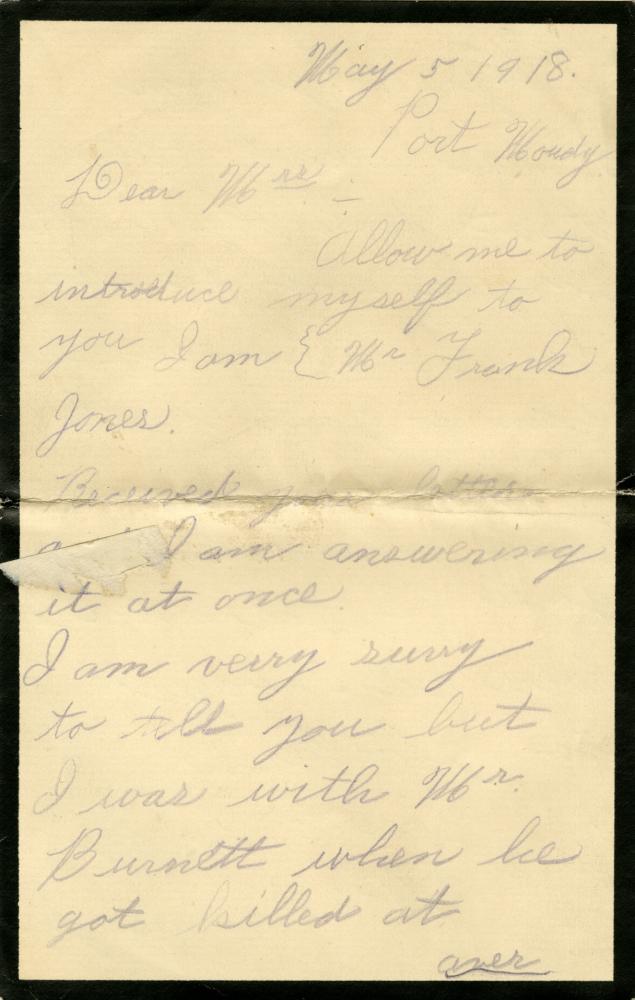 May 5 1918.
Port Moody
Dear Mrs -
Allow me to
introduce myself to
you I am { Mr Frank
Jones.
Received your letter
I am answering
it at once
I am verry surry
to tell you but
I was with Mr.
Burnett when he
got killed at
over